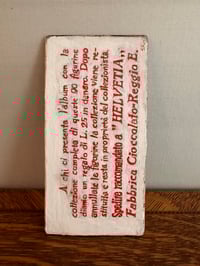 A chi ci presenta l'album con la
collezione completa di queste 90 figurine
diamo un regalo di L. 25 in danaro. Dopo
annullate le figurine la collezione viene re-
stituita e resta in proprietà del collezionista.
Spedire raccomandato a "HELVETIA„
Fabbrica Cioccolato-Reggio E.